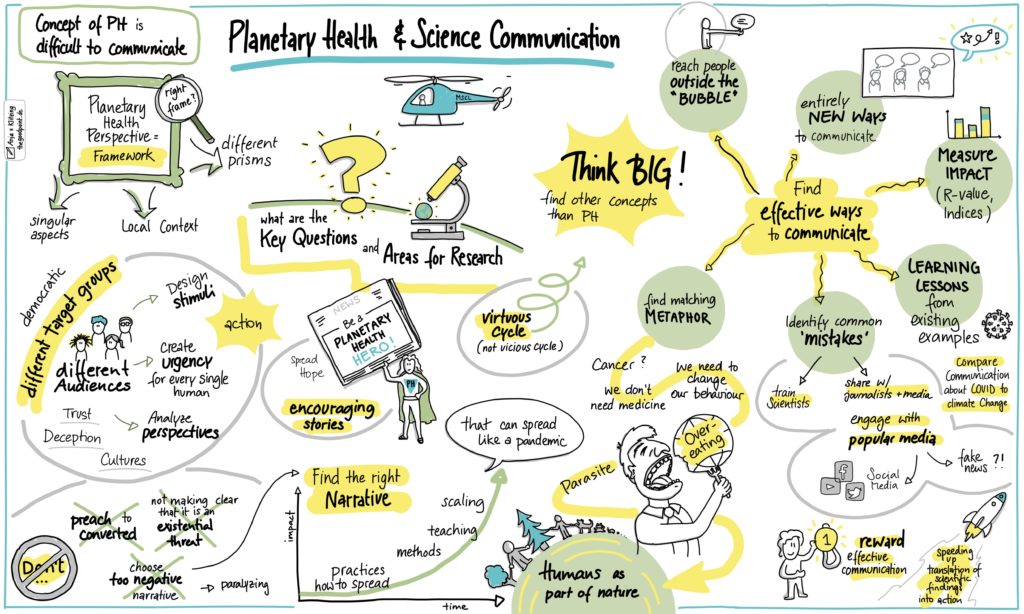 Concept of PH is
difficult to communicate
Planetary Health & Science Communication
Planetary
Health
Perspective =
Framework
right
frame?
different
prisms
singular
aspects
Local Context
MSCL
what are the
Key Questions
and Areas for Research
Think BIG!
find other concepts
than PH
reach people
outside the
"BUBBLE"
entirely
NEW WAYS
to communicate
Measure
IMPACT
(R-value,
Indices)
Find
effective ways
to communicate
LEARNING
LESSONS
from
existing
examples
find matching
METAPHOR
Identify common
'mistakes'
democratic
different target groups
different
Audiences
Design
stimuli
Create
urgency
for every single
human
Analyze
perspectives
Trust
Deception
Cultures
action
NEWS
Be a
PLANETARY
HEALTH
HERO!
PH
Spread
Hope
encouraging
stories
virtuous
cycle
(not vicious cycle)
that can spread
like a pandemic
Cancer?
We don't
need medicine
We need to
change
our behaviour
Over-
eating
Parasite
Humans as
part of nature
train
Scientists
share w/
journalists + media
compare
Communication
about COVID to
climate Change
engage with
popular media
Social
Media
fake
news ?!
1
reward
effective
communication
speeding
up
translation of
scientific
findings
into action
Don't
...
preach to
converted
not making clear
that it is an
existential
threat
choose
too negative
narrative
paralyzing
Find the right
Narrative
impact
time
practices
how to spread
methods
teaching
scaling
thegoodpoint.de